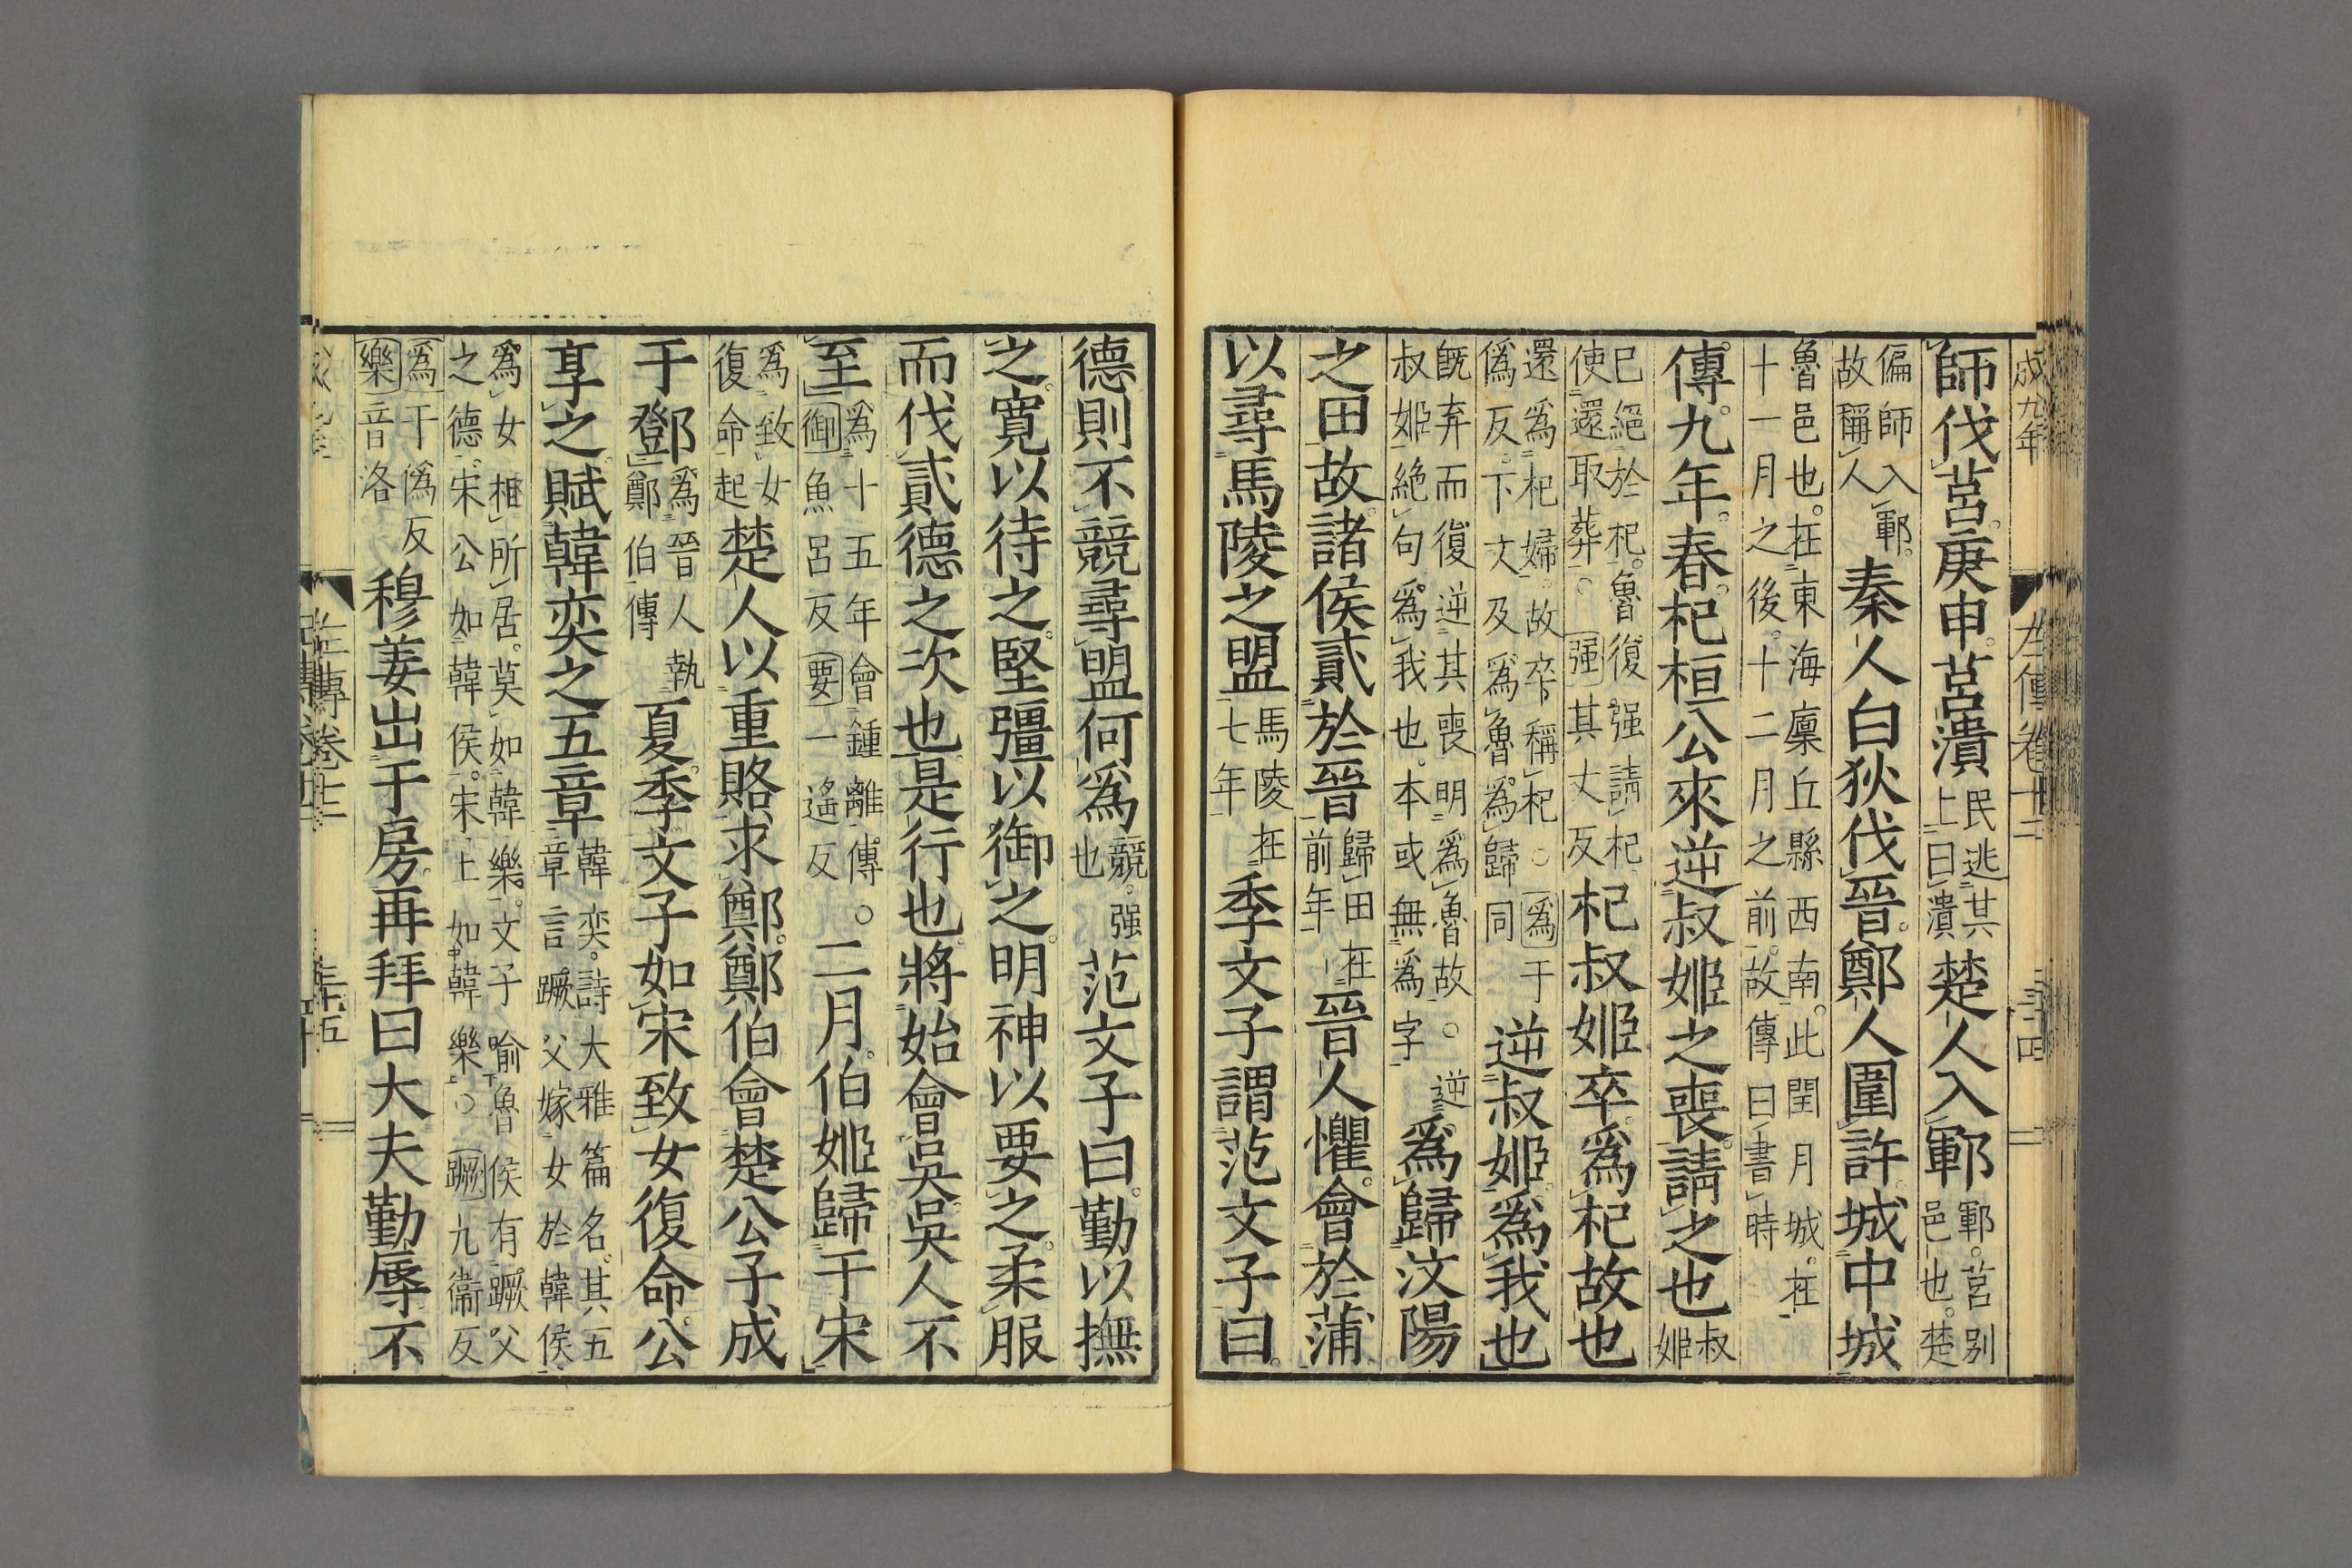 成九年 左傳卷十二 三十四
師伐莒庚申莒潰民逃其上曰潰楚人入鄆鄆莒別邑也楚
偏師入鄆故稱人秦人白狄伐晉鄭人圍許城中城
魯邑也在東海廩丘縣西南此閏月城在十一月之後十二月之前故傳曰書時
傳九年春杞桓公來逆叔姬之喪請之也叔姬
已絕於杞魯復强請杞使還取葬○强其丈反杞叔姬卒爲杞故也
還爲杞婦故卒稱杞○爲于僞反下文及爲魯爲歸同逆叔姬爲我也
旣弃而復逆其喪明爲魯故○逆叔姬絕句爲我也本或無爲字爲歸汶陽
之田故諸侯貳於晉歸田在前年晉人懼會於蒲
以尋馬陵之盟馬陵在七年季文子謂范文子曰
德則不競尋盟何爲競强也范文子曰勤以撫
之寬以待之堅彊以御之明神以要之柔服
而伐貳德之次也是行也將始會吳吳人不
至爲十五年會鍾離傳○御魚呂反要一遙反二月伯姬歸于宋
爲致女復命起楚人以重賂求鄭鄭伯會楚公子成
于鄧爲晉人執鄭伯傳夏季文子如宋致女復命公
享之賦韓奕之五章韓奕詩大雅篇名其五章言蹶父嫁女於韓侯
爲女相所居莫如韓樂文子喻魯侯有蹶父之德宋公如韓侯宋土如韓樂○蹶九衞反
爲于僞反樂音洛穆姜出于房再拜曰大夫勤辱不
左傳卷十二 三十五